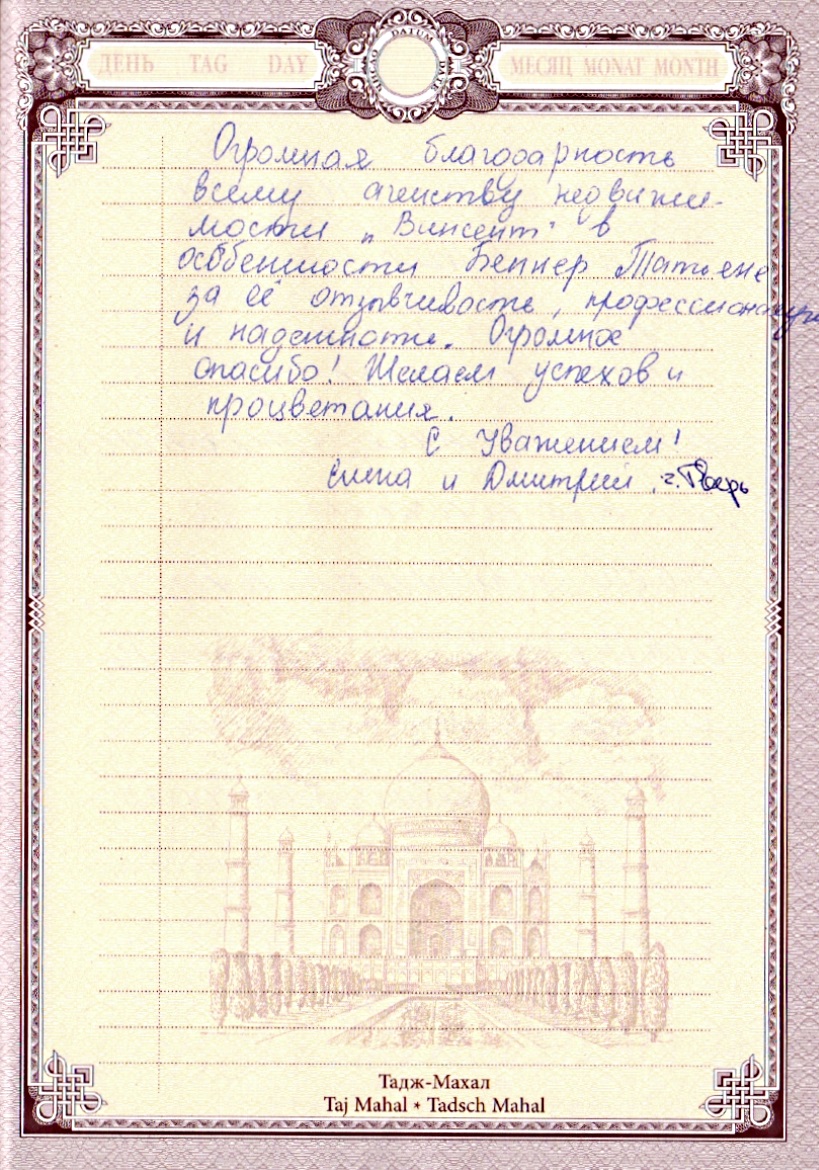 ДЕНЬ TAG DAY DATUM МЕСЯЦ MONAT MONTH
Огромная благодарность
всему агенству недвижи-
мости „Винсент" в
особенности Беннер Татьяне
за её отзывчивость, профессионализм
и надежность. Огромное
спасибо! Желаем успехов и
процветания.
С Уважением!
Елена и Дмитрий, г. Тверь
Тадж-Махал
Taj Mahal * Tadsch Mahal